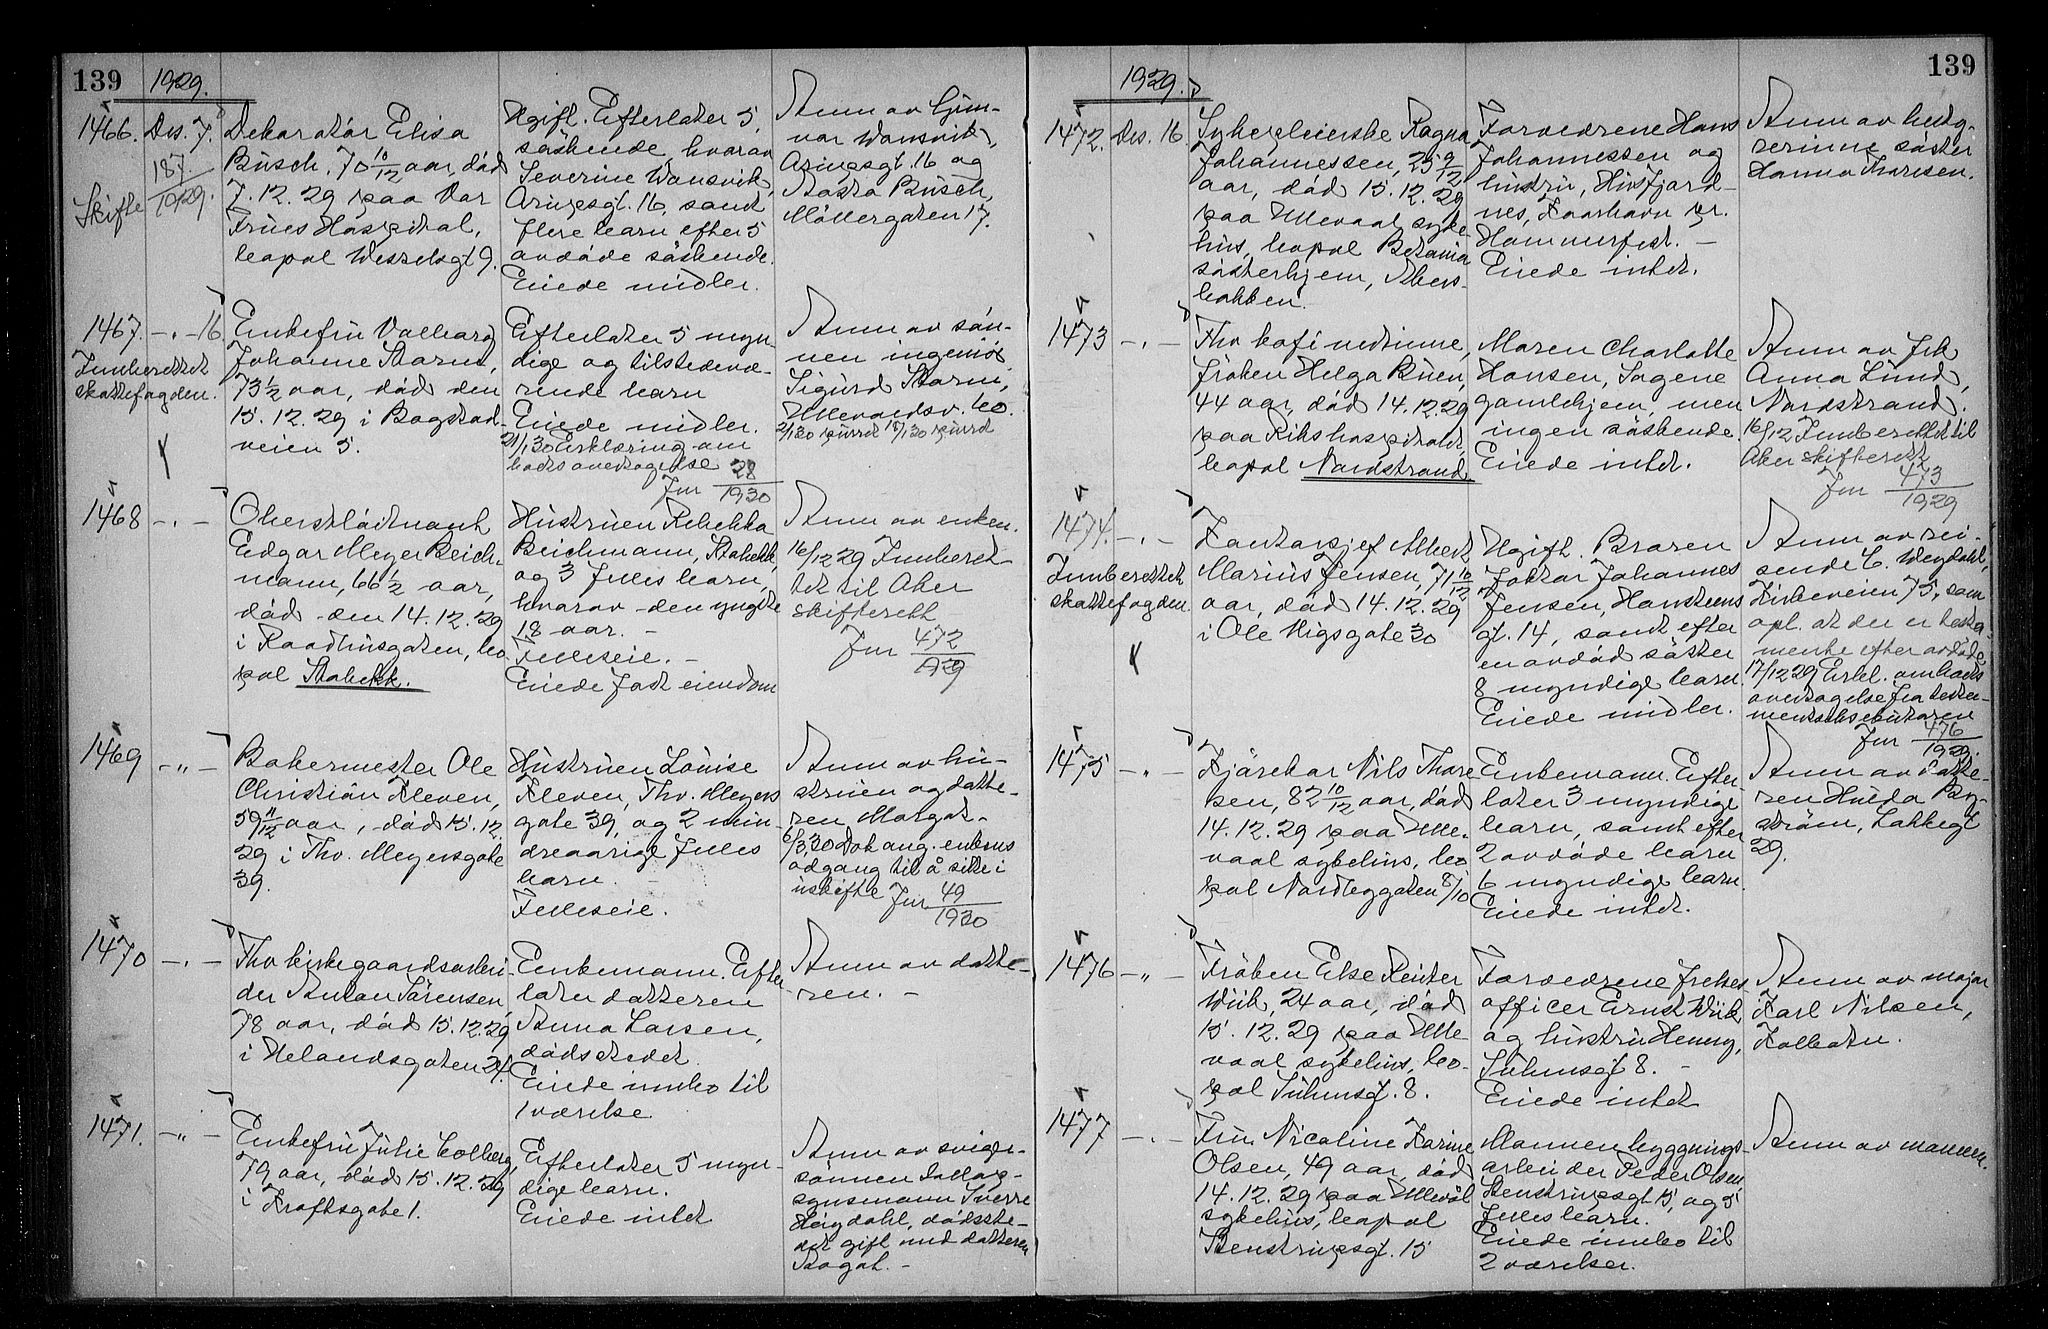 139
1929.
1466. Des. 7. Dekoratør Elisa
Busch, 70 10/12 aar, død
7.12.29 paa Vor
Frues Hospital,
bopæl Wesselsgt 9.
187/1929.
Skifte
Ugift. Efterlater 5
søskende hvorav
Severine Wansvik,
Arupsgt. 16, samt
flere barn efter 5
avdøde søskende.
Eiede midler.
Anm av Gun-
vor Wansvik,
Arupsgt. 16 og
Busch,
Møllergaten 17.
1467. -"- 16
Innberettet
skattefogden.
Enkefru Valborg
Johanne Storm,
73 1/2 aar, død den
15.12.29 i Bogstad-
veien 5.
Efterlater 5 myn-
dige og tilstedevæ-
rende barn
Eiede midler.
21/1 30 Erklæring om
boets overtagelse
Jnr 28/1930
Anm av søn-
nen ingeniør
Sigurd Storm,
Ullevaalsv. 60.
2/1 30 purret 15/1 30 purret
1468 -"-
Oberstløitnant
Edgar Meyer Beich-
mann, 66 1/2 aar,
død den 14.12.29
i Raadhusgaten, bo-
pæl Stabekk.
Hustruen Rebekka
Beichmann, Stabekk,
og 3 felles barn,
hvorav den yngste
18 aar. -
Felleseie. -
Eiede fast eiendom
Anm av enken.
16/12 29 Innberet-
tet til Aker
skifterett
Jnr 472/1929
1469 -"-
Bakermester Ole
Christian Kleven,
59 11/12 aar, død 15.12.
29 i Thv. Meyersgate
39.
Hustruen Louise
Kleven, Thv. Meyers
gate 39, og 2 min-
dreaarige felles
barn. -
Felleseie.
Anm av hu-
struen og datte-
ren Margot.
6/3 30 Dok ang. enkens
adgang til å sitte i
uskifte Jnr 49/1930
1470 -"-
Fhv kirkegaardsarbei-
der Anton Sørensen,
78 aar, død 15.12.29
i Helandsgaten 24.
Enkemann. Efter-
later datteren
Anna Larsen,
dødsstedet.
Eiede innbo til
1 værelse
Anm av datte-
ren. -
1471. -"-
Enkefru Julie Colberg,
79 aar, død 15.12.29
i Kroftsgate 1.
Efterlater 5 myn-
dige barn.
Eiede intet
Anm av sviger-
sønnen
Sverre
Høigdahl, dødsste-
det gift med datteren
Aagot. -
139
1929.
1472. Des. 16.
Sykepleierske Ragna
Johannessen, 25 9/12
aar, død 15.12.29
paa Ullevaal syke-
hus, bopæl Betania
søsterhjem, Akers-
bakken.
Forældrene Hans
Johannessen og
hustru, Husfjord-
nes, Kaarhavn pr.
Hammerfest. -
Eiede intet.
Anm av besty-
rerinne søster
Hanna Thoresen.
1473 -"-
Fhv kafévertinne,
frøken Helga Buen,
44 aar, død 14.12.29
paa Rikshospitalet,
bopæl Nordstrand
Maren Charlotte
Hansen, Sagene
gamlehjem, men
ingen søskende.
Eiede intet.
Anm av frk
Anna Lund,
Nordstrand.
16/12 Innberettet til
Aker skifterett
Jnr 473/1929
1474. -"-
Innberettet
skattefogden
Kontorsjef Albert
Marius Jensen, 71 10/12
aar, død 14.12.29
i Ole Vigsgate 30
Ugift. Broren
Doktor Johannes
Jensen, Hansteens
gt. 14, samt efter
en avdød søster
8 myndige barn.
Eiede midler.
Anm av rei-
sende C. Weydahl,
Kirkeveien 75, som
opl. at der er testa-
mente efter avdøde
17/12 29 Erkl. om boets
overtagelse fra testa-
mentseksekutoren
Jnr 476/1929.
1475 -"-
Kjørekar Nils Thore-
sen, 82 10/12 aar, død
14.12.29 paa Ulle-
vaal sykehus, bo-
pæl Nordbygaten 8/10
Enkemann. Efter-
later 3 myndige
barn, samt efter
2 avdøde barn
6 myndige barn.
Eiede intet.
Anm av datte-
ren Hulda By-
strøm, Lakkegt
29.
1476 -"-
Frøken Else Reuter
Wiik, 24 aar, død
15.12.29 paa Ulle-
vaal sykehus, bo-
pæl Suhmsgt. 8.
Forældrene frelses-
officer Ernst Wiik
og hustru Henny,
Suhmsgt 8. -
Eiede intet
Anm av major
Karl Nilsen,
Kolbotn.
1477 -"-
Fru Nicoline Karine
Olsen, 49 aar, død
14.12.29 paa Ullevål
sykehus, bopæl
Stenstrupsgt. 15
Mannen bygnings-
arbeider Peder Olsen
Stenstrupsgt 15, og 5
felles barn.
Eiede innbo til
2 værelser.
Anm av mannen.